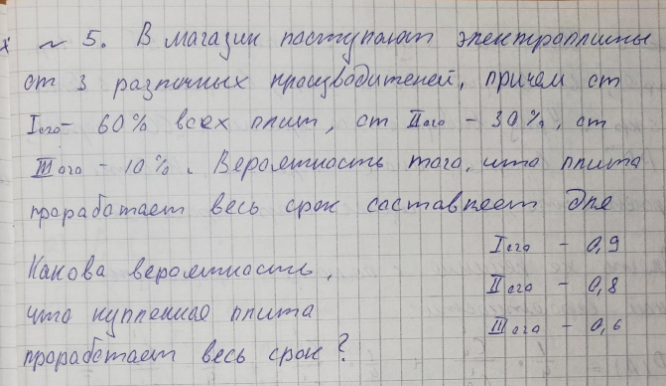 х ~ 5. В магазин поступают электроплиты
от 3 различных производителей, причем от
Iого - 60% всех плит, от IIого - 30%, от
IIIого - 10%. Вероятность того, что плита
проработает весь срок составляет для
Iого - 0,9
Какова вероятность,
IIого - 0,8
что купленная плита
IIIого - 0,6
проработает весь срок?